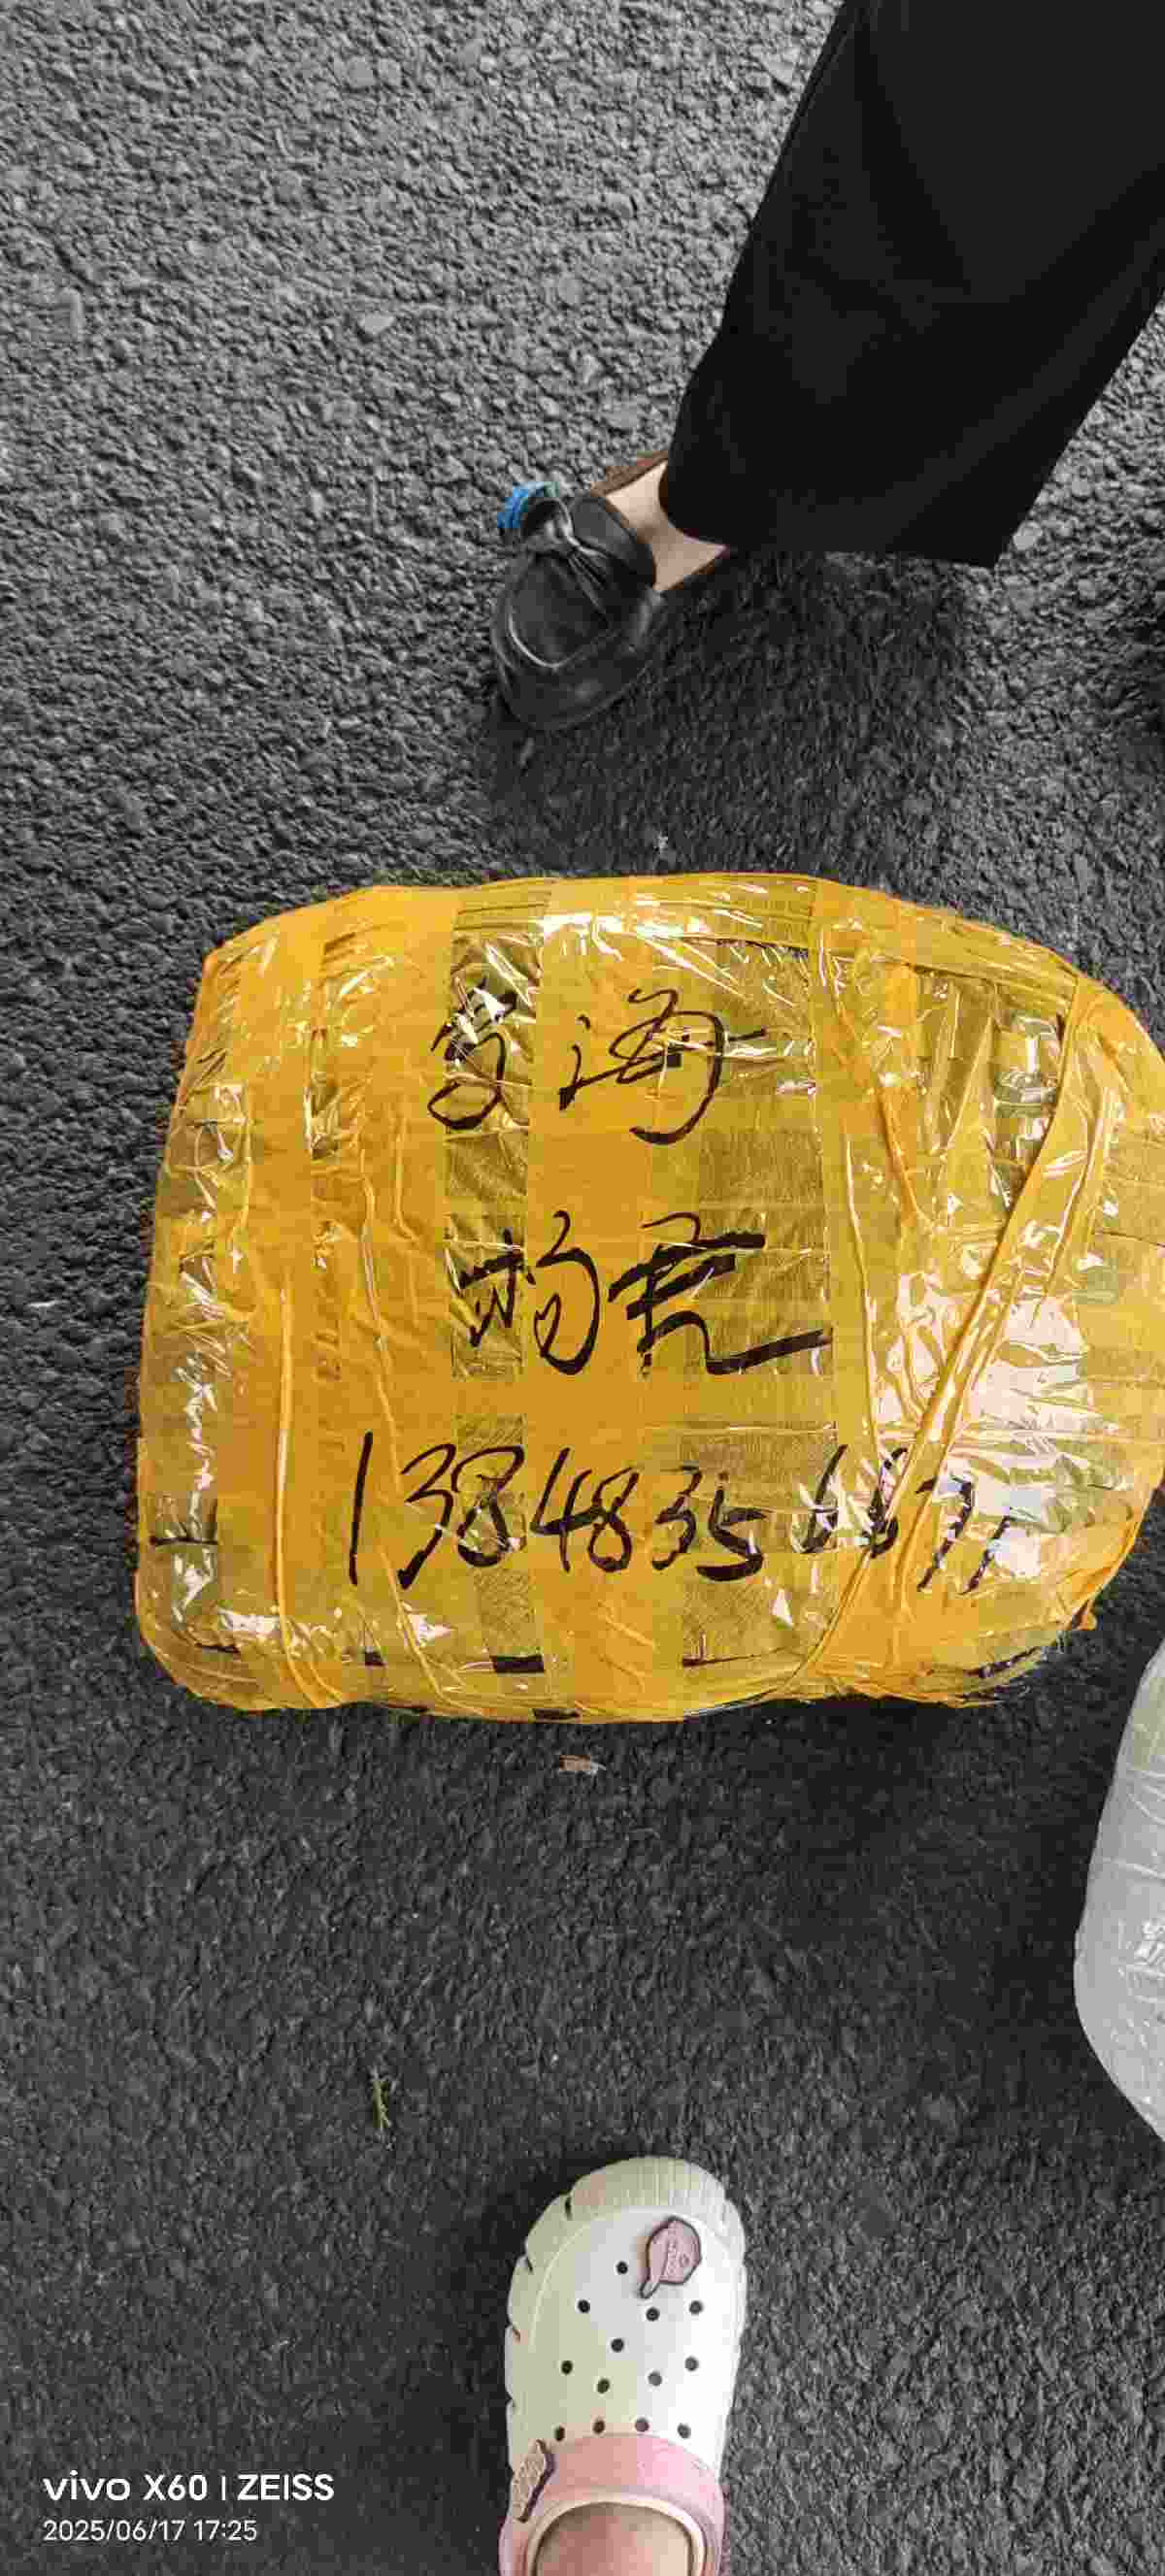 乌海
杨
13848356671
vivo X60 | ZEISS
2025/06/17 17:25